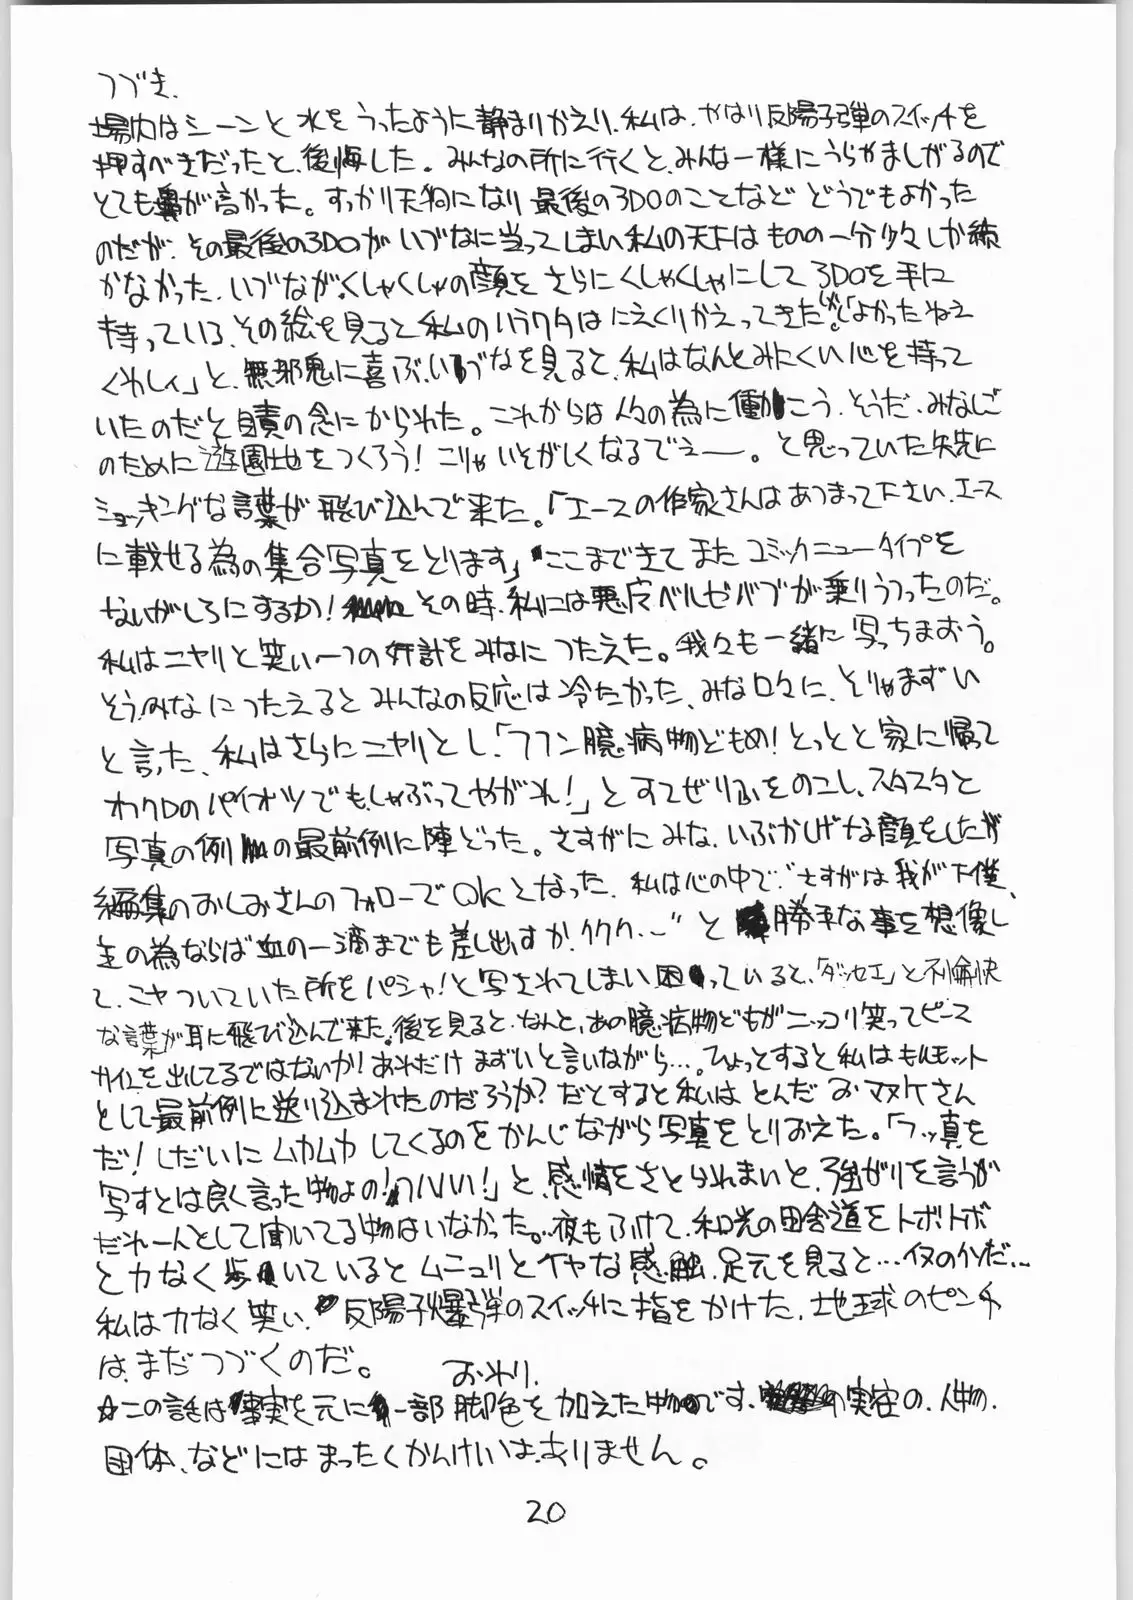 つづき.
場内はシーンと水をうったように静まりかえり、私は、やはり反陽子弾のスイッチを
押すべきだったと、後悔した。みんなの所に行くと、みんな一様にうらやましがるので
とても鼻が高かった。すっかり天狗になり最後の3DOのことなど どうでもよかった
のだが、その最後の3DOがいづなに当ってしまい私の天下はものの一分少々しか続
かなかった、いづながくしゃくしゃの顔をさらにくしゃくしゃにして3DOを手に
持っている、その絵を見ると私のハラワタはにえくりかえってきたが、「よかったねェ
くやしィ」と、無邪鬼に喜ぶ、いづなを見ると、私はなんとみにくい心を持って
いたのだと自責の念にかられた。これからは人々の為に働こう、そうだ、みなしご
のために遊園地をつくろう！こりゃいそがしくなるでェー。と思っていた矢先に
ショッキングな言葉が飛び込んで来た。「エースの作家さんはあつまって下さい、エース
に載せる為の集合写真をとります」ここまできてまたコミックニュータイプを
ないがしろにするか！その時、私には悪魔ベルゼバブが乗りうつったのだ。
私はニヤリと笑い一つの奸計をみなにつたえた。我々も一緒に写っちまおう。
そう、みなにつたえるとみんなの反応は冷たかった、みな口々に、そりゃまずい
と言った、私はさらにニヤリとし、「フフン臆病物どもめ！とっとと家に帰って
オカクロのパイオツでも、しゃぶってやがれ！」とすてぜりふをのこし、スタスタと
写真の例の最前例に陣どった。さすがにみな、いぶかしげな顔をしたが
編集のおしおさんのフォローでOKとなった、私は心の中で“さすがは我が下僕、
主の為ならば血の一滴までも差し出すか、ククク…”と勝手な事を想像し
て、ニヤついていた所をパシャ！と写されてしまい困っていると、「ダッセエ」と不愉快
な言葉が耳に飛び込んで来た。後を見ると、なんと、あの臆病物どもがニッコリ笑ってピース
サインを出してるではないか！あれだけまずいと言いながら…。ひょっとすると私はモルモット
として最前例に送り込まれたのだろうか？だとすると私はとんだおマヌケさん
だ！しだいにムカムカしてくるのをかんじながら写真をとりおえた。「フッ真を
写すとは良く言った物よの！ハハハ！」と、感情をさとられまいと、強がりを言うが
だれ一人として聞いてる物はいなかった。夜もふけて、和光の田舎道をトボトボ
と力なく歩いているとムニュリとイヤな感触、足元を見ると…イヌのクソだ…
私は力なく笑い、反陽子爆弾のスイッチに指をかけた、地球のピンチ
は、まだつづくのだ。
おわり.
☆この話は事実を元に一部脚色を加えた物です、実在の、人物、
団体、などにはまったくかんけいは、ありません。
20